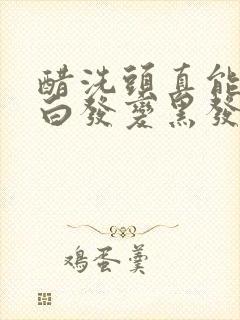 醋洗頭真能
白發變黑發
鸡蛋羹